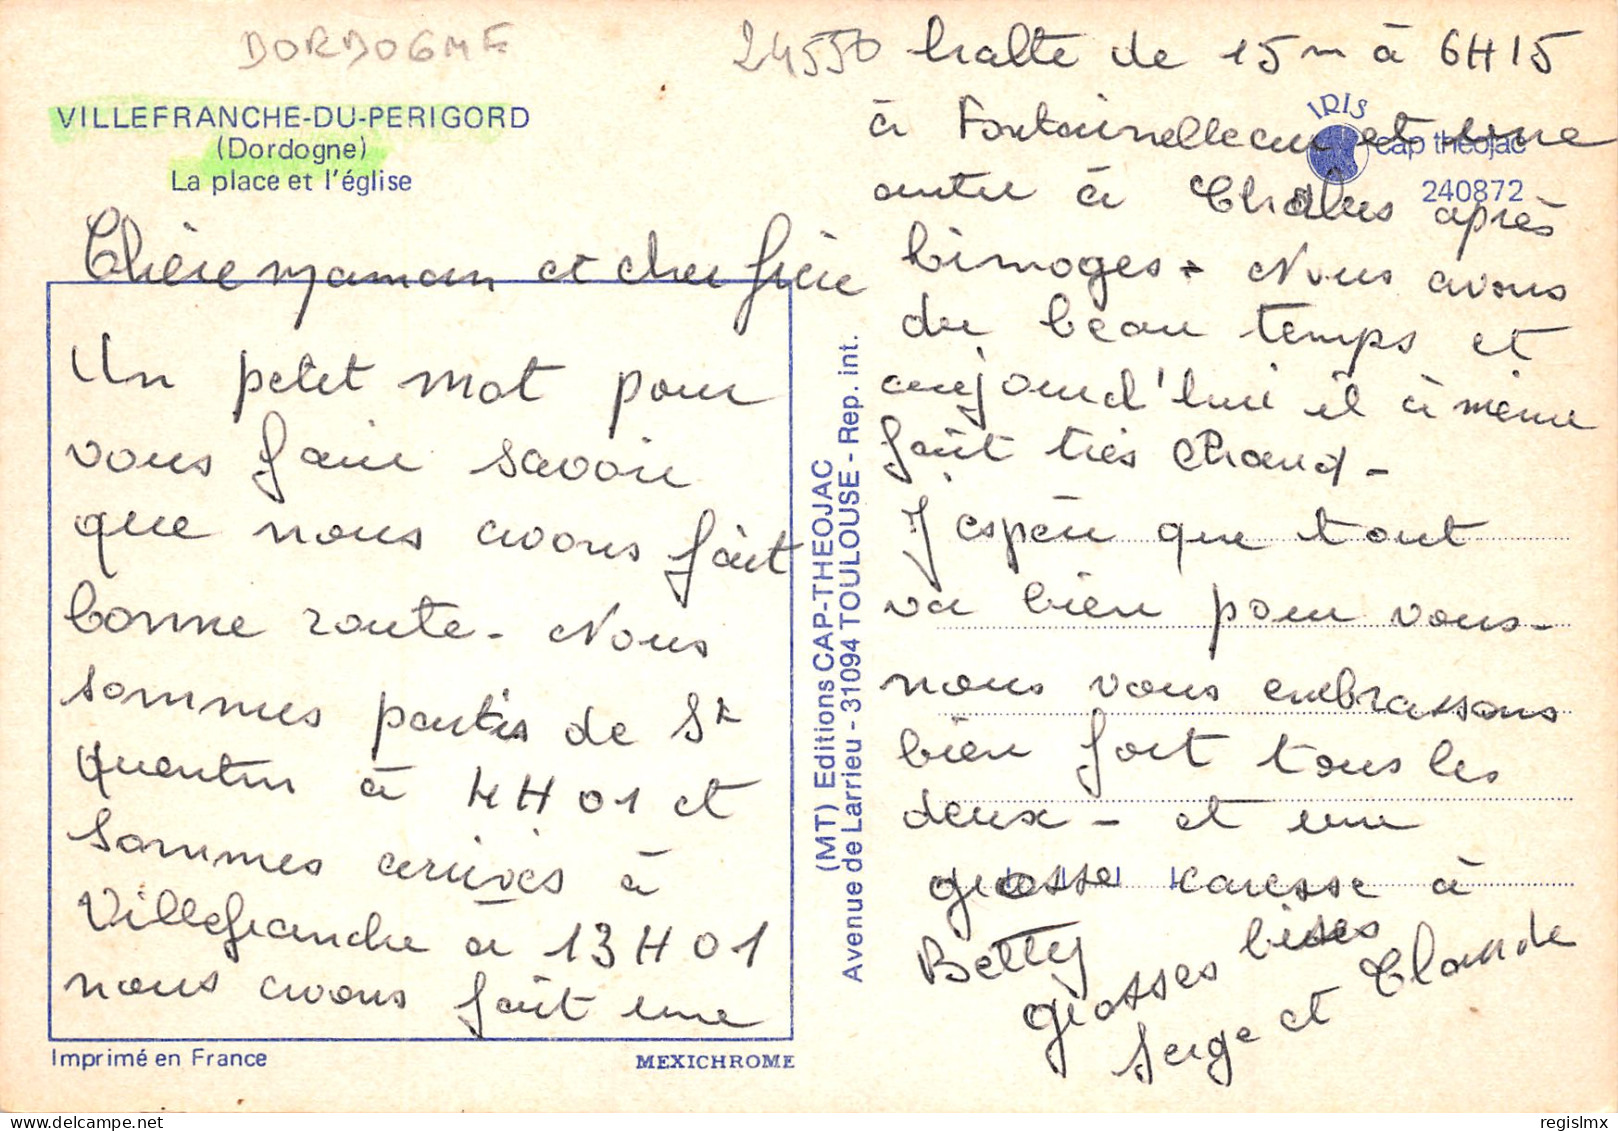 DORDOGNE
24550
VILLEFRANCHE-DU-PERIGORD
(Dordogne)
La place et l'église
Chère maman et cher frère
Un petit mot pour
vous faire savoir
que nous avons fait
bonne route. Nous
sommes partis de St
Quentin à 4H01 et
sommes arrivés à
Villefranche à 13H01
nous avons fait une
halte de 15 m à 6H15
à Fontainelleau et une
autre à Chalus après
Limoges. Nous avons
du beau temps et
aujourd'hui il à même
fait très chaud -
J'espère que tout
va bien pour vous.
nous vous embrassons
bien fort tous les
deux - et une
grosse caresse à
Betty
grosses bises
Serge et Claude
IRIS
cap théojac
240872
(MT) Editions CAP-THEOJAC
Avenue de Larrieu - 31094 TOULOUSE - Rep. int.
Imprimé en France
MEXICHROME
delcampe.net
regislmx